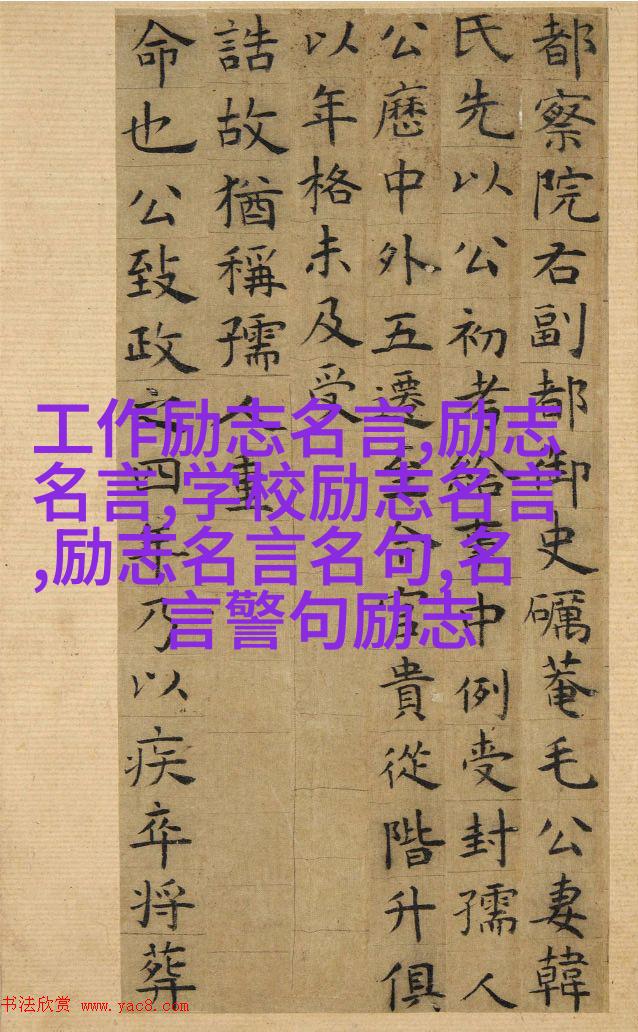 都察院右副都御史礪菴毛公妻韓
氏先以公初考給事中例受封孺人
公歷中外五遷至今官貴從階升俱
以年格未及受
誥故猶稱孺人重
命也公致政之四年乃以疾卒将葬
工作励志名言,励志
名言,学校励志名言
,励志名言名句,名
言警句励志
书法欣赏 www.yac8.com